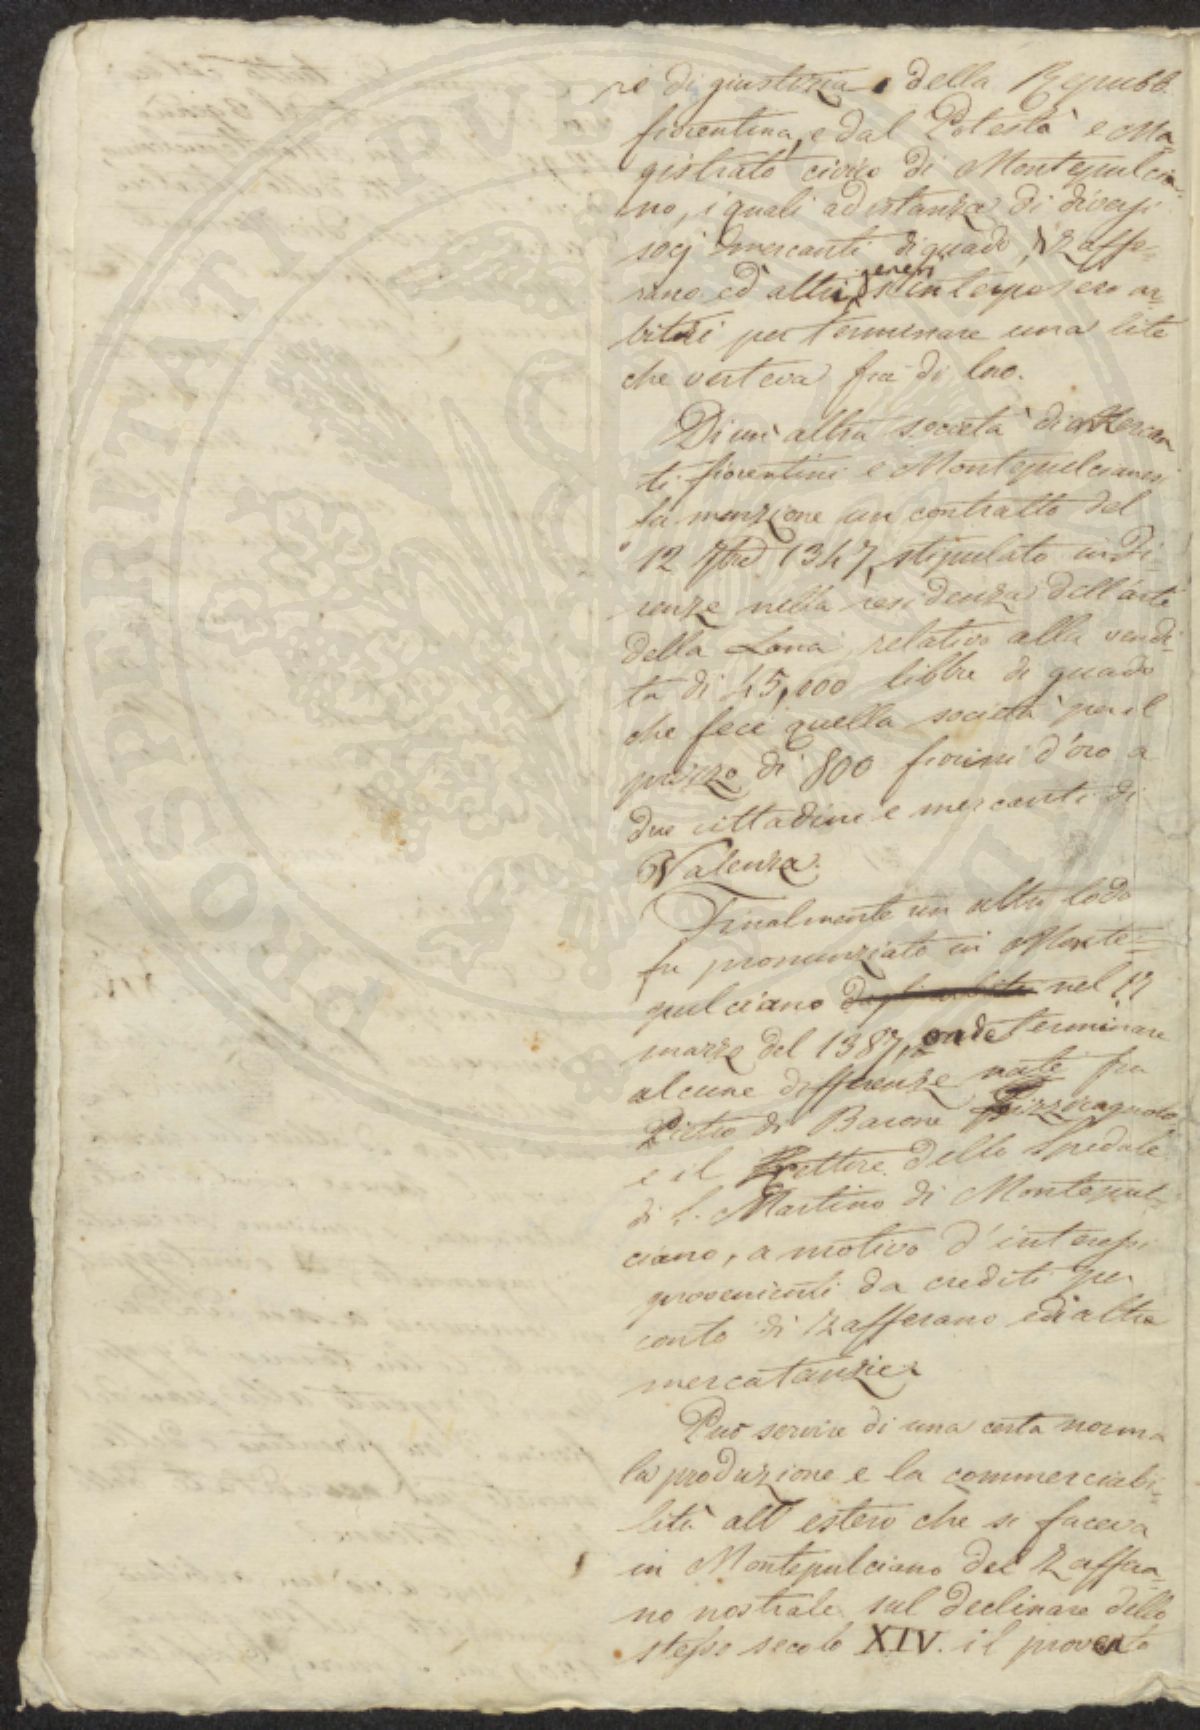 re di giustizia della Repubb.
fiorentina, e dal Potestà e Ma=
gistrato civico di Montepulcia=
no, i quali ad istanza di diversi
socj mercanti di guado, di zaffe=
rano ed altri generi s'interposero ar=
bitri per terminare una lite
che verteva fra di loro.
Di un' altra società di Mercan
ti fiorentini e Montepulcianesi
fa menzione un contratto del
12 7bre 1347, stipulato in Fi=
renze nella residenza dell'arte
della Lana, relativo alla vendi=
ta di 45,000 libbre di guado
che fece quella società per il
prezzo di 800 fiorini d'oro a
due cittadini e mercanti di
Valenza.
Finalmente un altro lodo
fu pronunziato in Monte=
pulciano nel 12
marzo del 1387, onde terminare
alcune differenze nate fra
Pietro di Barone
e il Rettore dello Spedale
di S. Martino di Montepul=
ciano, a motivo d'interessi
provenienti da crediti per
conto di zafferano ed altre
mercatanzie.
Può servire di una certa norma
la produzione e la commerciabi=
lità all' estero che si faceva
in Montepulciano del zaffera=
no nostrale sul declinare dello
stesso secolo XIV. il provento
PROSPERITATI PVBLICAE